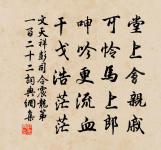 堂上會親戚
可憐馬上郎
呻吟更流血
干戈浩茫茫
文天祥彭司令震龍第
一百二十二詞典網集